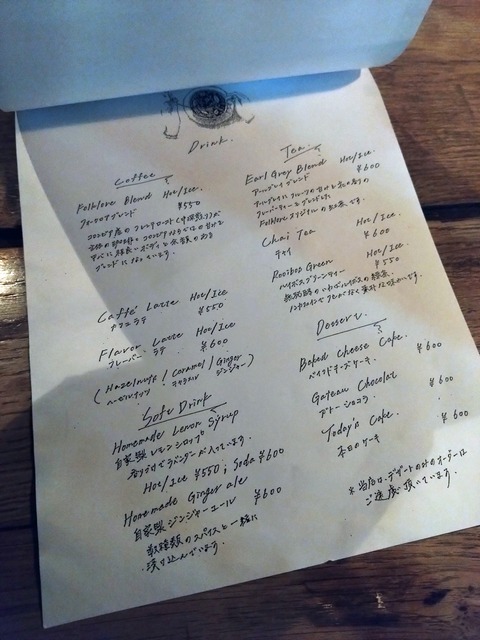 Drink.
Coffee
Folklore Blend Hot/Ice.
フォークロアブレンド ¥550
コロンビア産の
ブレンドになっています。
Caffé Latte Hot/Ice
カフェラテ ¥550
Flavor Latte Hot/Ice
フレーバー ラテ ¥600
(Hazelnuts / Caramel / Ginger)
ヘーゼルナッツ キャラメル ジンジャー
Soft Drink
Homemade Lemon Syrup
自家製レモンシロップ
Hot/Ice ¥550 ; Soda ¥600
Homemade Ginger ale
自家製ジンジャーエール ¥600
数種類のスパイスと一緒に
漬け込んでいます。
Tea
Earl Grey Blend Hot/Ice
アールグレイブレンド ¥600
フレーバーティーをブレンドした
Folkloreオリジナルの紅茶です。
Chai Tea Hot/Ice
チャイ ¥600
Rooibos Green Hot/Ice
ルイボスグリーンティー ¥550
Dessert
Baked Cheese Cake.
ベイクドチーズケーキ. ¥600
Gateau Chocolat
ガトーショコラ ¥600
Today's Cake.
本日のケーキ ¥600
*当店は、デザートのみのオーダーは
ご遠慮頂いています。